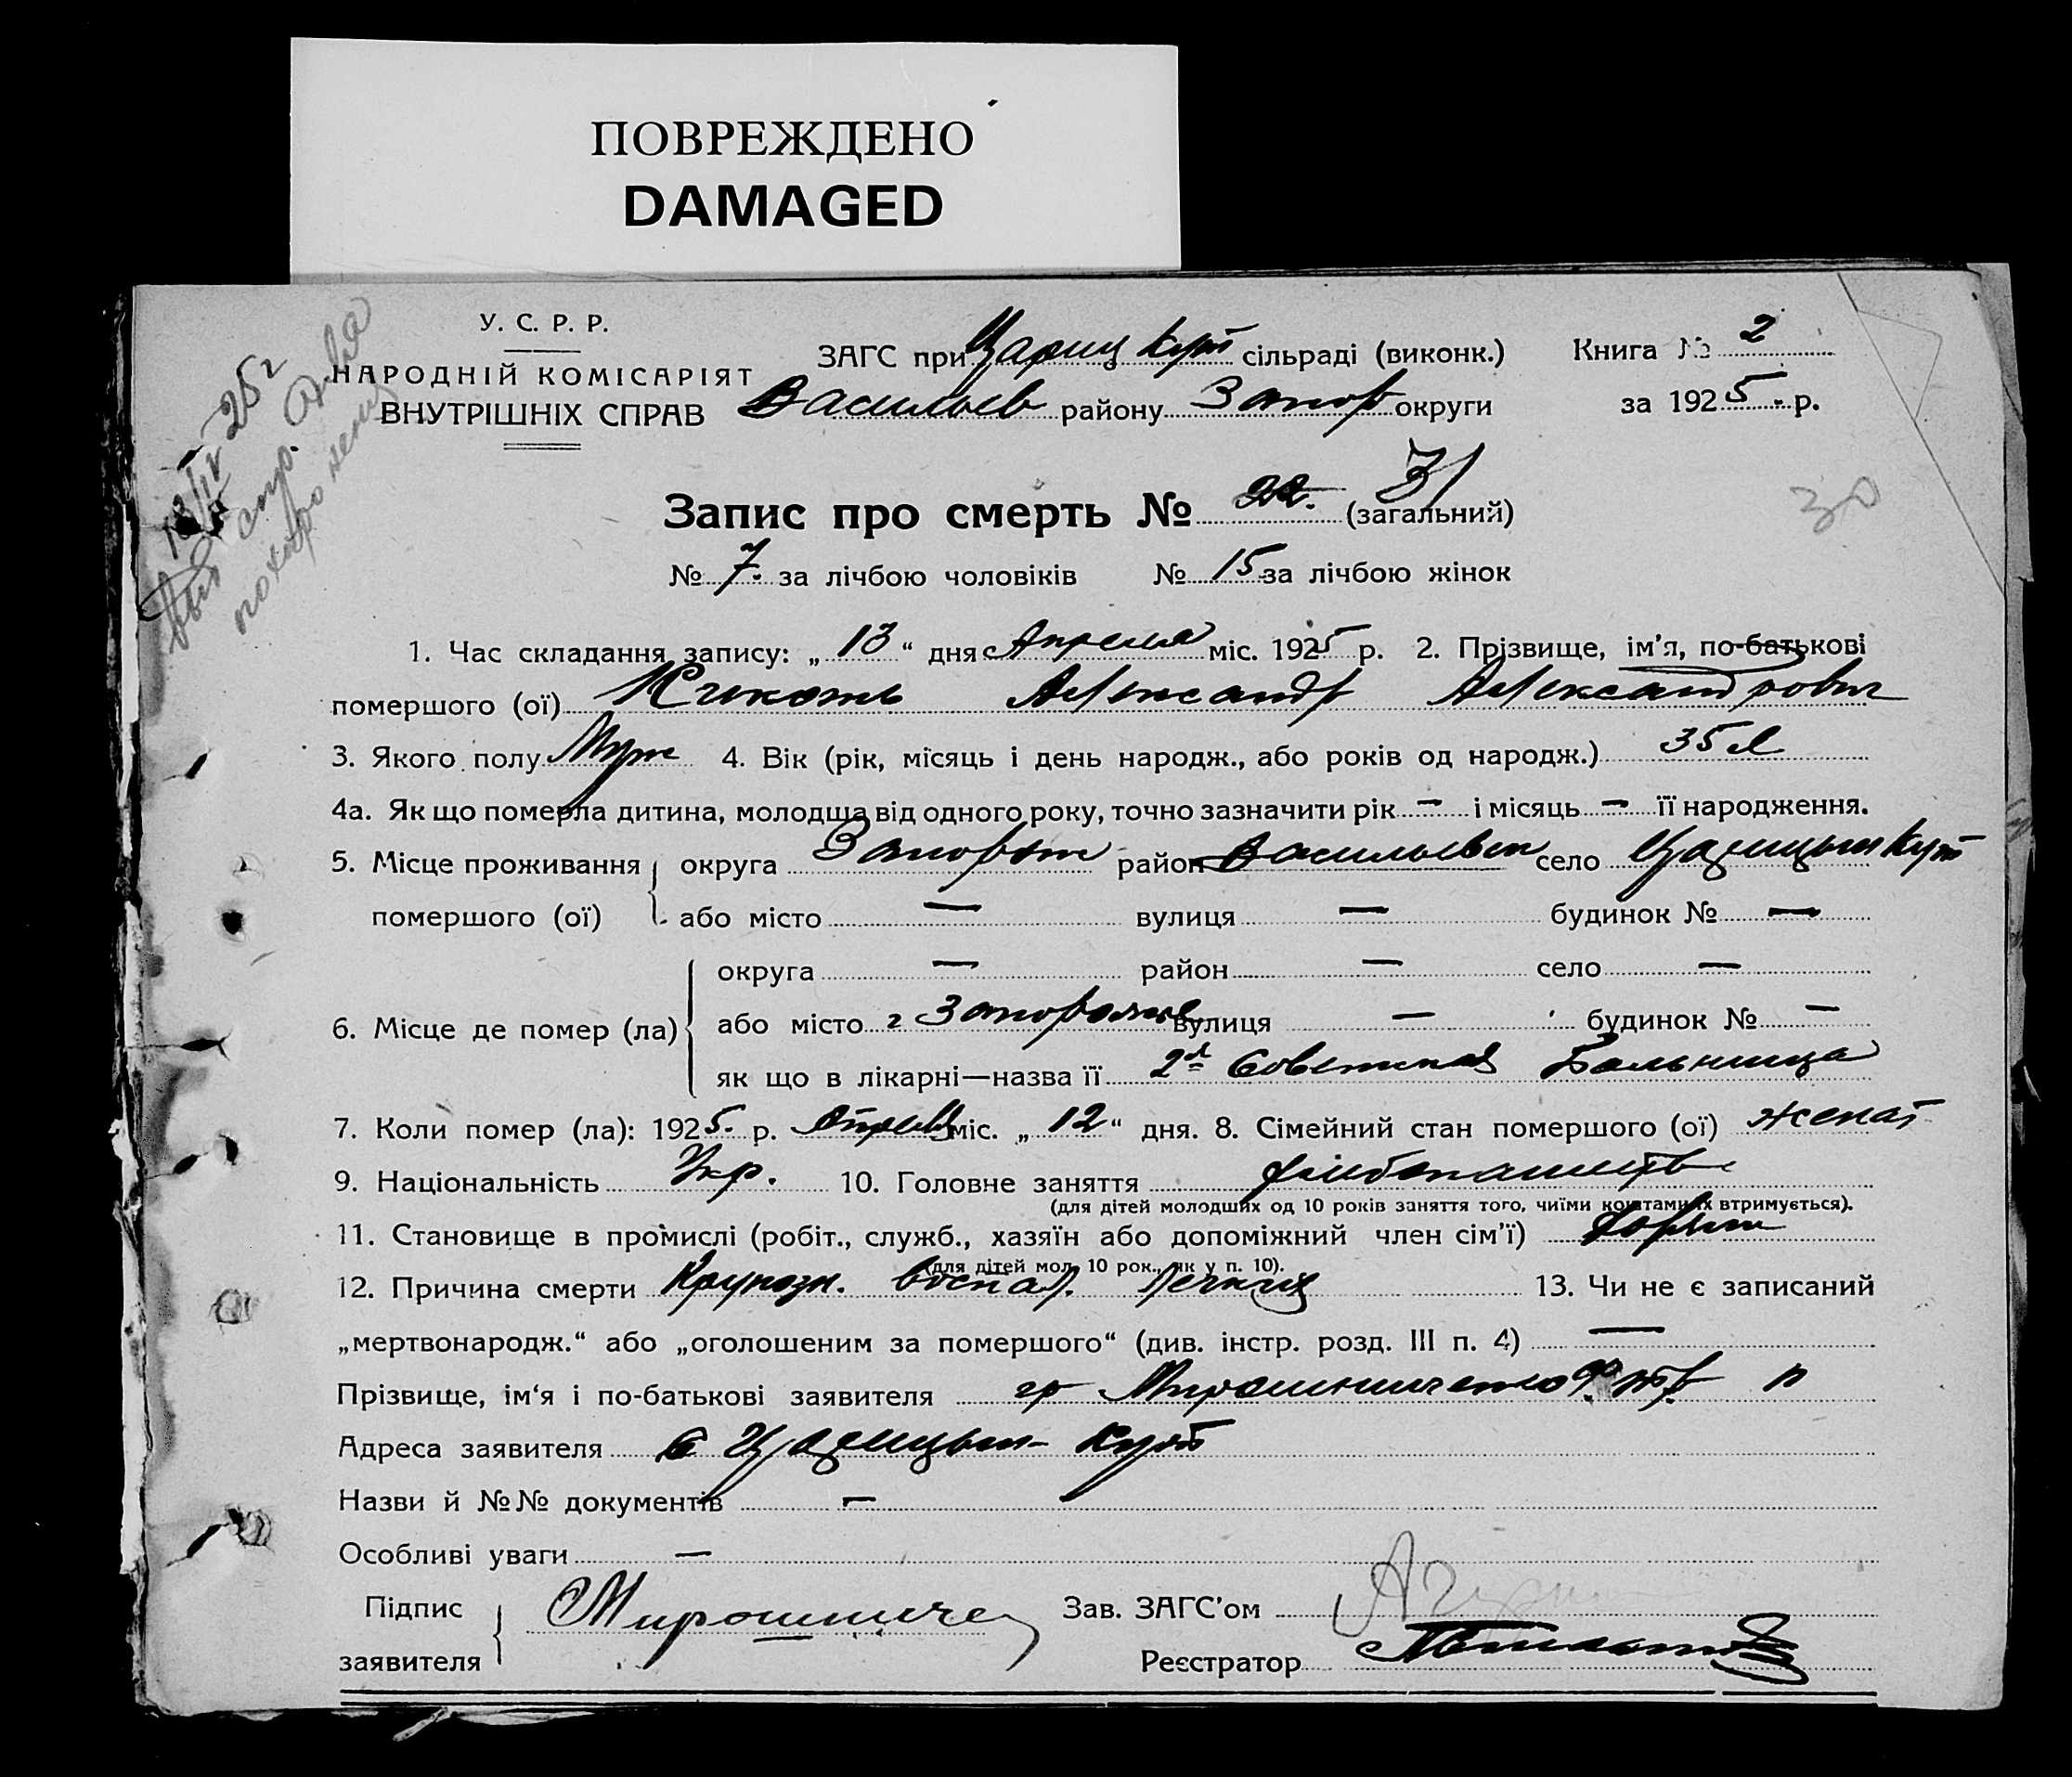 ПОВРЕЖДЕНО
DAMAGED
У. С. Р. Р.
НАРОДНІЙ КОМІСАРІЯТ
ВНУТРІШНІХ СПРАВ
ЗАГС при Цариц Кут сільраді (виконк.)
Васильев району Запор округи
Книга № 2
за 1925 р.
13/IV 25 г
Запис про смерть № 22. (загальний) 31
30
№ 7. за лічбою чоловіків № 15 за лічбою жінок
1. Час складання запису: „13“ дня Апреля міс. 1925 р. 2. Прізвище, ім’я, по-батькові
помершого (ої) Александр Александрович
3. Якого полу Муж 4. Вік (рік, місяць і день народж., або років од народж.) 35 л
4а. Як що померла дитина, молодша від одного року, точно зазначити рік — і місяць — її народження.
5. Місце проживання помершого (ої) округа Запорож район Васильевск село Царицын Кут
або місто — вулиця — будинок № —
6. Місце де помер (ла) округа — район — село —
або місто г Запорожье вулиця — будинок № —
як що в лікарні—назва її 2я Советская Больница
7. Коли помер (ла): 1925. р. Апреля міс. „12“ дня. 8. Сімейний стан помершого (ої) женат
9. Національність Укр. 10. Головне заняття хлебопашеств
(для дітей молодших од 10 років заняття того, чиїми коштами їх втримується).
11. Становище в промислі (робіт., служб., хазяїн або допоміжний член сім’ї)
(для дітей мол. 10 рок., як у п. 10).
12. Причина смерти Крупозн. воспал. легких 13. Чи не є записаний
„мертвонародж.“ або „оголошеним за помершого“ (див. інстр. розд. III п. 4) —
Прізвище, ім‘я і по-батькові заявителя гр Мирошниченко
Адреса заявителя с Царицын-Кут
Назви й №№ документів —
Особливі уваги —
Підпис заявителя Мирошниче
Зав. ЗАГС’ом
Реєстратор